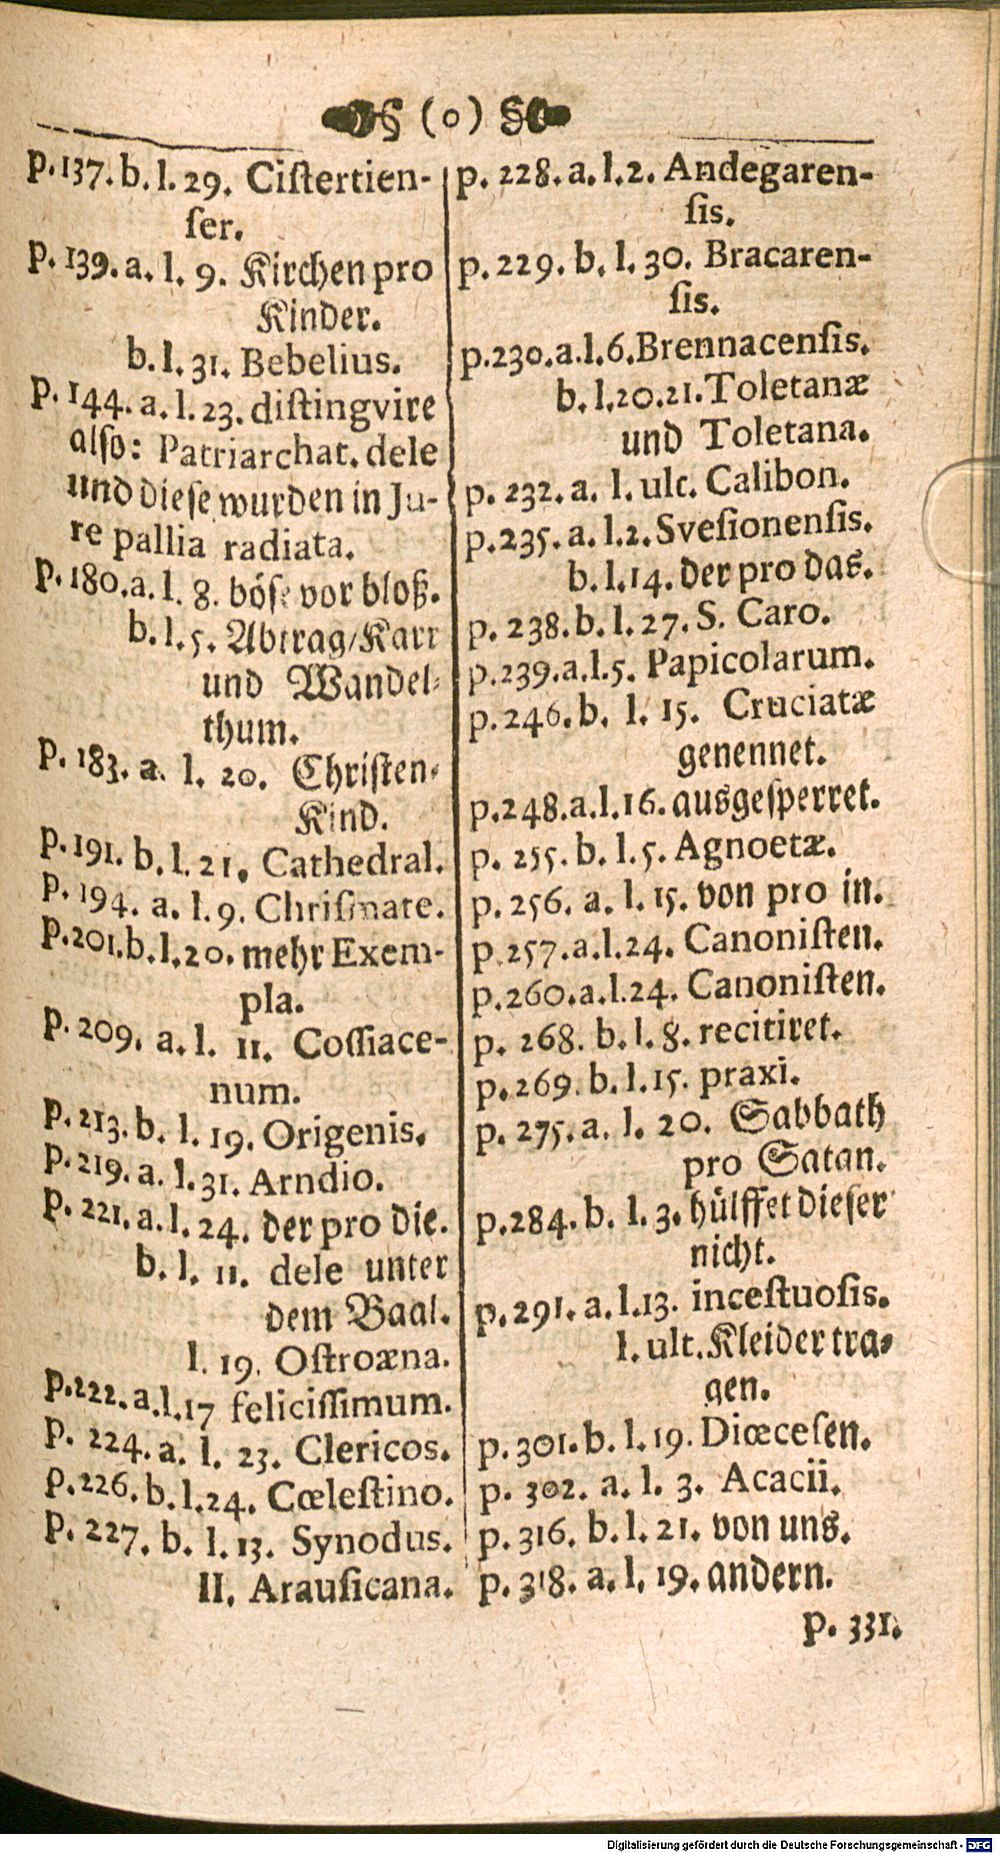 § ( o ) §
p. 137. b. l. 29. Ciſtertien-
ſer.
p. 139. a. l. 9. Kirchen pro
Kinder.
b. l. 31. Bebelius.
p. 144. a. l. 23. diſtingvire
alſo: Patriarchat. dele
und dieſe wurden in Ju-
re pallia radiata.
p. 180. a. l. 8. böſe vor bloß.
b. l. 5. Abtrag/Karr
und Wandel-
thum.
p. 183. a. l. 20. Chriſten-
Kind.
p. 191. b. l. 21. Cathedral.
p. 194. a. l. 9. Chriſmate.
p. 201. b. l. 20. mehr Exem-
pla.
p. 209. a. l. 11. Coſſiace-
num.
p. 213. b. l. 19. Origenis.
p. 219. a. l. 31. Arndio.
p. 221. a. l. 24. der pro die.
b. l. 11. dele unter
dem Baal.
l. 19. Oſtroæna.
p. 222. a. l. 17 feliciſſimum.
p. 224. a. l. 23. Clericos.
p. 226. b. l. 24. Cœleſtino.
p. 227. b. l. 13. Synodus.
II. Arauſicana.
p. 228. a. l. 2. Andegaren-
ſis.
p. 229. b. l. 30. Bracaren-
ſis.
p. 230. a. l. 6. Brennacenſis.
b. l. 20. 21. Toletanæ
und Toletana.
p. 232. a. l. ult. Calibon.
p. 235. a. l. 2. Sveſionenſis.
b. l. 14. der pro das.
p. 238. b. l. 27. S. Caro.
p. 239. a. l. 5. Papicolarum.
p. 246. b. l. 15. Cruciatæ
genennet.
p. 248. a. l. 16. ausgeſperret.
p. 255. b. l. 5. Agnoetæ.
p. 256. a. l. 15. von pro in.
p. 257. a. l. 24. Canoniſten.
p. 260. a. l. 24. Canoniſten.
p. 268. b. l. 8. recitiret.
p. 269. b. l. 15. praxi.
p. 275. a. l. 20. Sabbath
pro Satan.
p. 284. b. l. 3. hülffet dieſer
nicht.
p. 291. a. l. 13. inceſtuoſis.
l. ult. Kleider tra-
gen.
p. 301. b. l. 19. Diœceſen.
p. 302. a. l. 3. Acacii.
p. 316. b. l. 21. von uns.
p. 318. a. l. 19. andern.
p. 331.
Digitalisierung gefördert durch die Deutsche Forschungsgemeinschaft - DFG